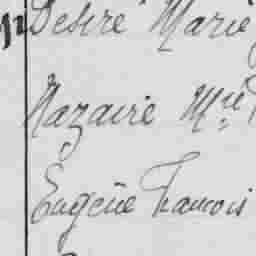 Désiré Marie
Nazaire Mie
Eugène Francois